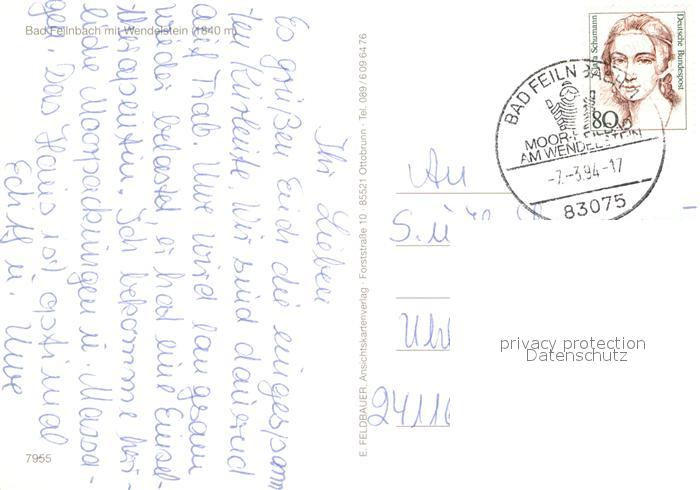 Bad Feilnbach mit Wendelstein (1840 m)
Ihr Lieben
Es grüßen Euch die eingespann
ten Kurleite. Wir sind dauernd
auf Trab. Uwe wird langsam
wieder belastet, er hat eine Einzel-
therapeutin. Ich bekomme herr-
liche Moorpackungen u. Massa-
gen. Das Haus ist optimal
Edith u. Uwe
7955
E. FELDBAUER, Ansichtskartenverlag · Forststraße 10 · 85521 Ottobrunn · Tel. 089 / 6 09 64 76
Clara Schumann
Deutsche Bundespost
80
BAD FEILNBACH
MOOR-HEILBAD
AM WENDELSTEIN
-7.-3.94-17
83075
An
24116
privacy protection
Datenschutz